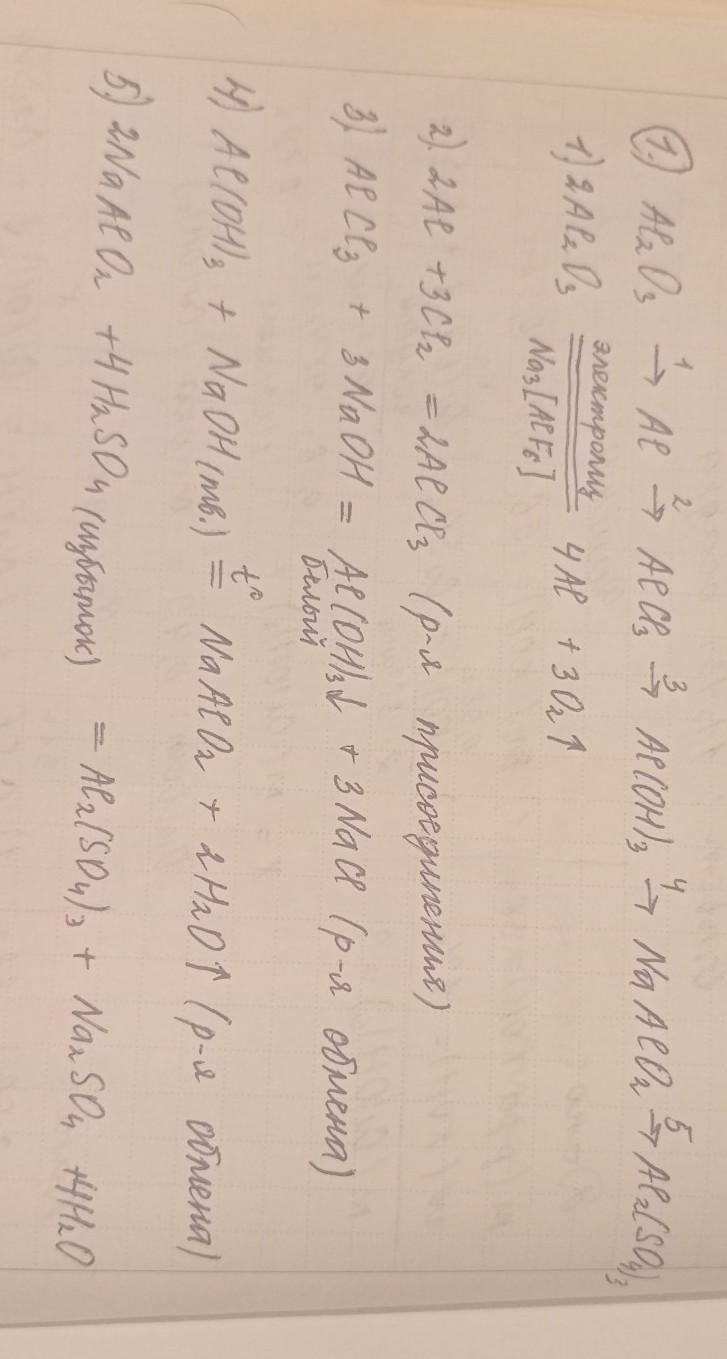 1.) Al₂O₃ →¹ Al →² AlCl₃ →³ Al(OH)₃ →⁴ NaAlO₂ →⁵ Al₂(SO₄)₃
1) 2Al₂O₃ электролиз 4Al + 3O₂↑
Na₃[AlF₆]
2). 2Al + 3Cl₂ = 2AlCl₃ (р-я присоединения)
3). AlCl₃ + 3NaOH = Al(OH)₃↓ + 3NaCl (р-я обмена)
белый
4) Al(OH)₃ + NaOH(тв.) =t° NaAlO₂ + 2H₂O↑ (р-я обмена)
5.) 2NaAlO₂ + 4H₂SO₄ (избыток) = Al₂(SO₄)₃ + Na₂SO₄ + 4H₂O